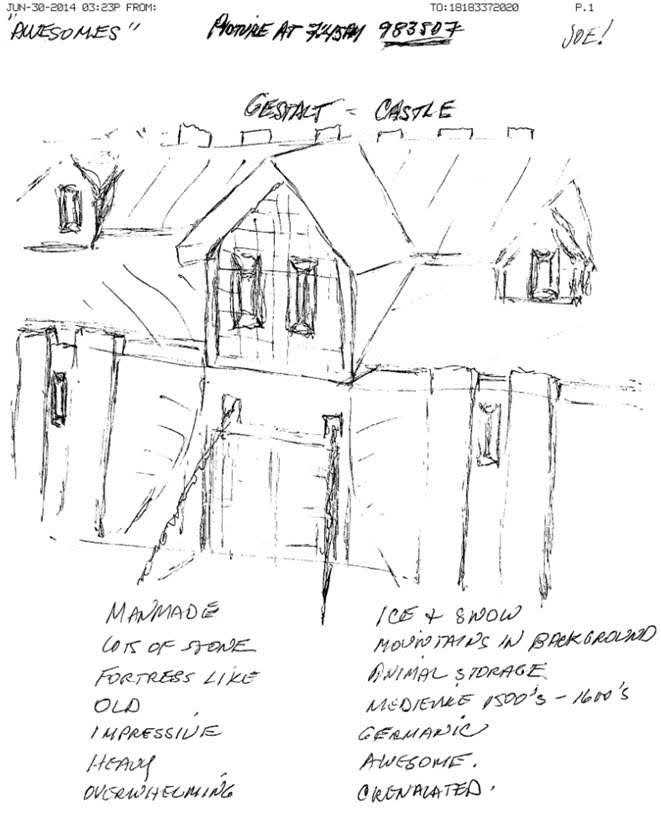 JUN-30-2014 03:23P FROM: TO:18183372020 P.1
"AWESOMES" PICTURE AT 7:45PM 983507 JOE!
GESTALT = CASTLE
MANMADE
LOTS OF STONE
FORTRESS LIKE
OLD
IMPRESSIVE
HEAVY
OVERWHELMING
ICE + SNOW
MOUNTAINS IN BACKGROUND
ANIMAL STORAGE
1500's - 1600's
GERMANIC
AWESOME.
CRENALATED.